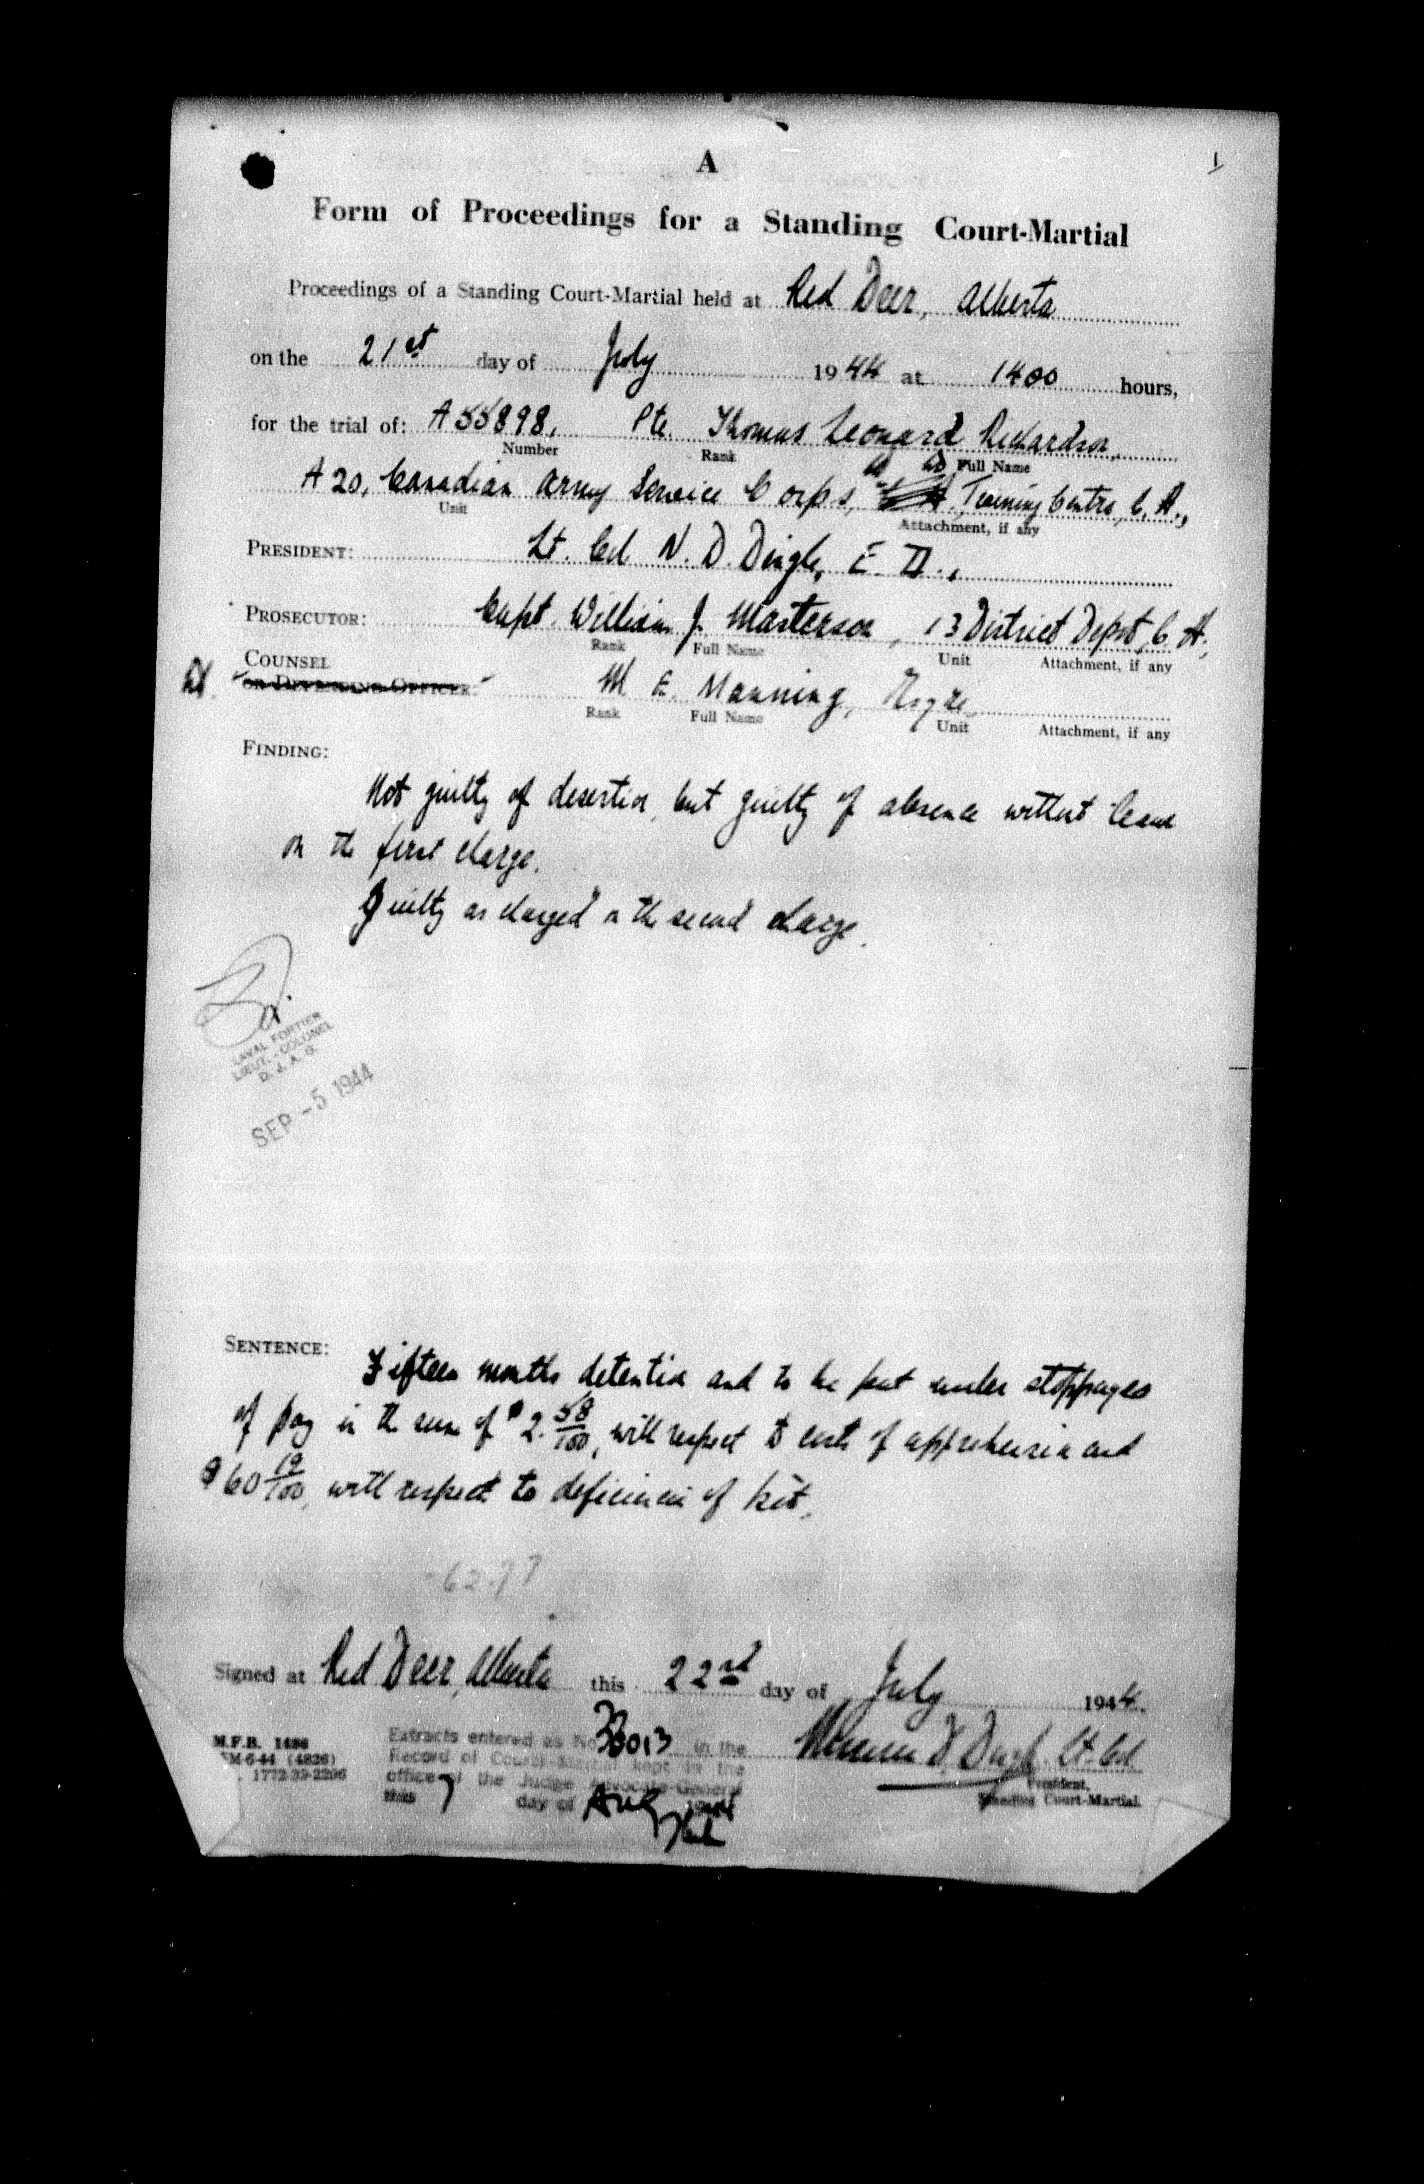 A
1
Form of Proceedings for a Standing Court-Martial
Proceedings of a Standing Court-Martial held at Red Deer, Alberta
on the 21st day of July 1944 at 1400 hours,
for the trial of: A55898, Pte. Thomas Leonard Richardson,
Number Rank Full Name
A20, Canadian Army Service Corps, Training Centre, C. A.,
Unit Attachment, if any
PRESIDENT: Lt. Col. N. D. Dingle, E. D.,
PROSECUTOR: Capt. William J. Masterson, 13 District Depot, C. A.,
Rank Full Name Unit Attachment, if any
COUNSEL
OR DEFENDING OFFICER: M. E. Manning, Esqre.
Rank Full Name Unit Attachment, if any
FINDING:
Not guilty of desertion, but guilty of absence without leave
on the first charge.
Guilty as charged on the second charge.
LAVAL FORTIER
LIEUT.-COLONEL
D. J. A. G.
SEP -5 1944
SENTENCE: Fifteen months detention and to be put under stoppages
of pay in the sum of $2. 58/100, with respect to costs of apprehension and
$60 19/100, with respect to deficiencies of kit.
62.77
Signed at Red Deer, Alberta this 22nd day of July 1944.
M.F.B. 1486
M-6-44 (4826)
1772-39-2206
Extracts entered as No. in the
Record of Court-Martial kept in the
office of the Judge Advocate-General
this 7 day of Aug 1944
Lt. Col.
President,
Standing Court-Martial.